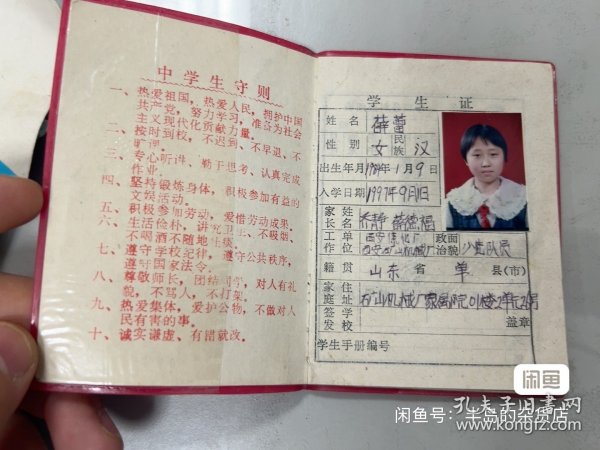 中学生守则
一、热爱祖国，热爱人民，拥护中国
共产党，努力学习，准备为社会
主义现代化贡献力量。
二、按时到校，不迟到、不早退、不
旷课。
三、专心听讲，勤于思考，认真完成
作业。
四、坚持锻炼身体，积极参加有益的
文娱活动。
五、积极参加劳动，爱惜劳动成果。
六、生活俭朴，讲究卫生，不吸烟、
不喝酒不随地吐痰。
七、遵守学校纪律，遵守公共秩序，
遵守国家法令。
八、尊敬师长，团结同学，对人有礼
貌，不骂人，不打架。
九、热爱集体，爱护公物，不做对人
民有害的事。
十、诚实谦虚、有错就改。
学生证
姓名 薛蕾
性别 女 民族 汉
出生年月 1984年1月9日
入学日期 1997年9月1日
家长姓名 乔静 薛德福
工作单位 西宁 政治面貌 少先队员
籍贯 山东省 单县(市)
家庭住址 矿山机械厂家属院
签发学校 盖章
学生手册编号
闲鱼
闲鱼号：半岛的杂货店
孔夫子旧书网
www.kongfz.com